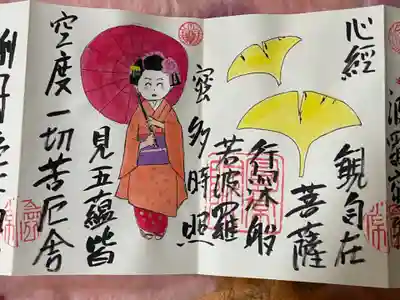 波羅
心經
觀自在
菩薩
行深般
若波羅
蜜多時照
見五蘊皆
空度一切苦厄舍